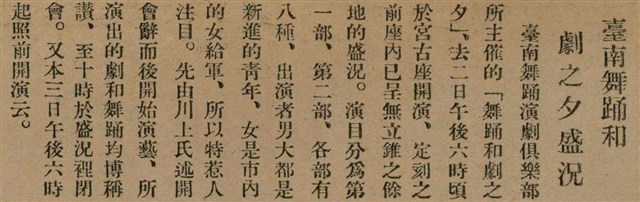 臺南舞踊和
劇之夕盛況
臺南舞踊演劇俱樂部
所主催的「舞踊和劇之
夕」、去二日午後六時頃
於宮古座開演、定刻之
前座內已呈無立錐之餘
地的盛況。演目分為第
一部、第二部、各部有
八種、出演者男大都是
新進的靑年、女是市內
的女給軍、所以特惹人
注目。先由川上氏述開
會辭而後開始演藝、所
演出的劇和舞踊均博稱
讚、至十時於盛況裡閉
會。又本三日午後六時
起照前開演云。